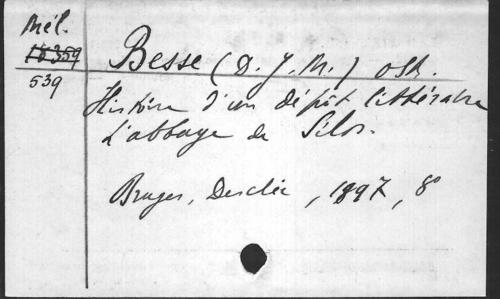 Mél.
18359
539
Besse (D. J. M.) osb.
Histoire d'un dépôt littéraire
L'abbaye de Silos.
Bruges, Desclée, 1897, 8°